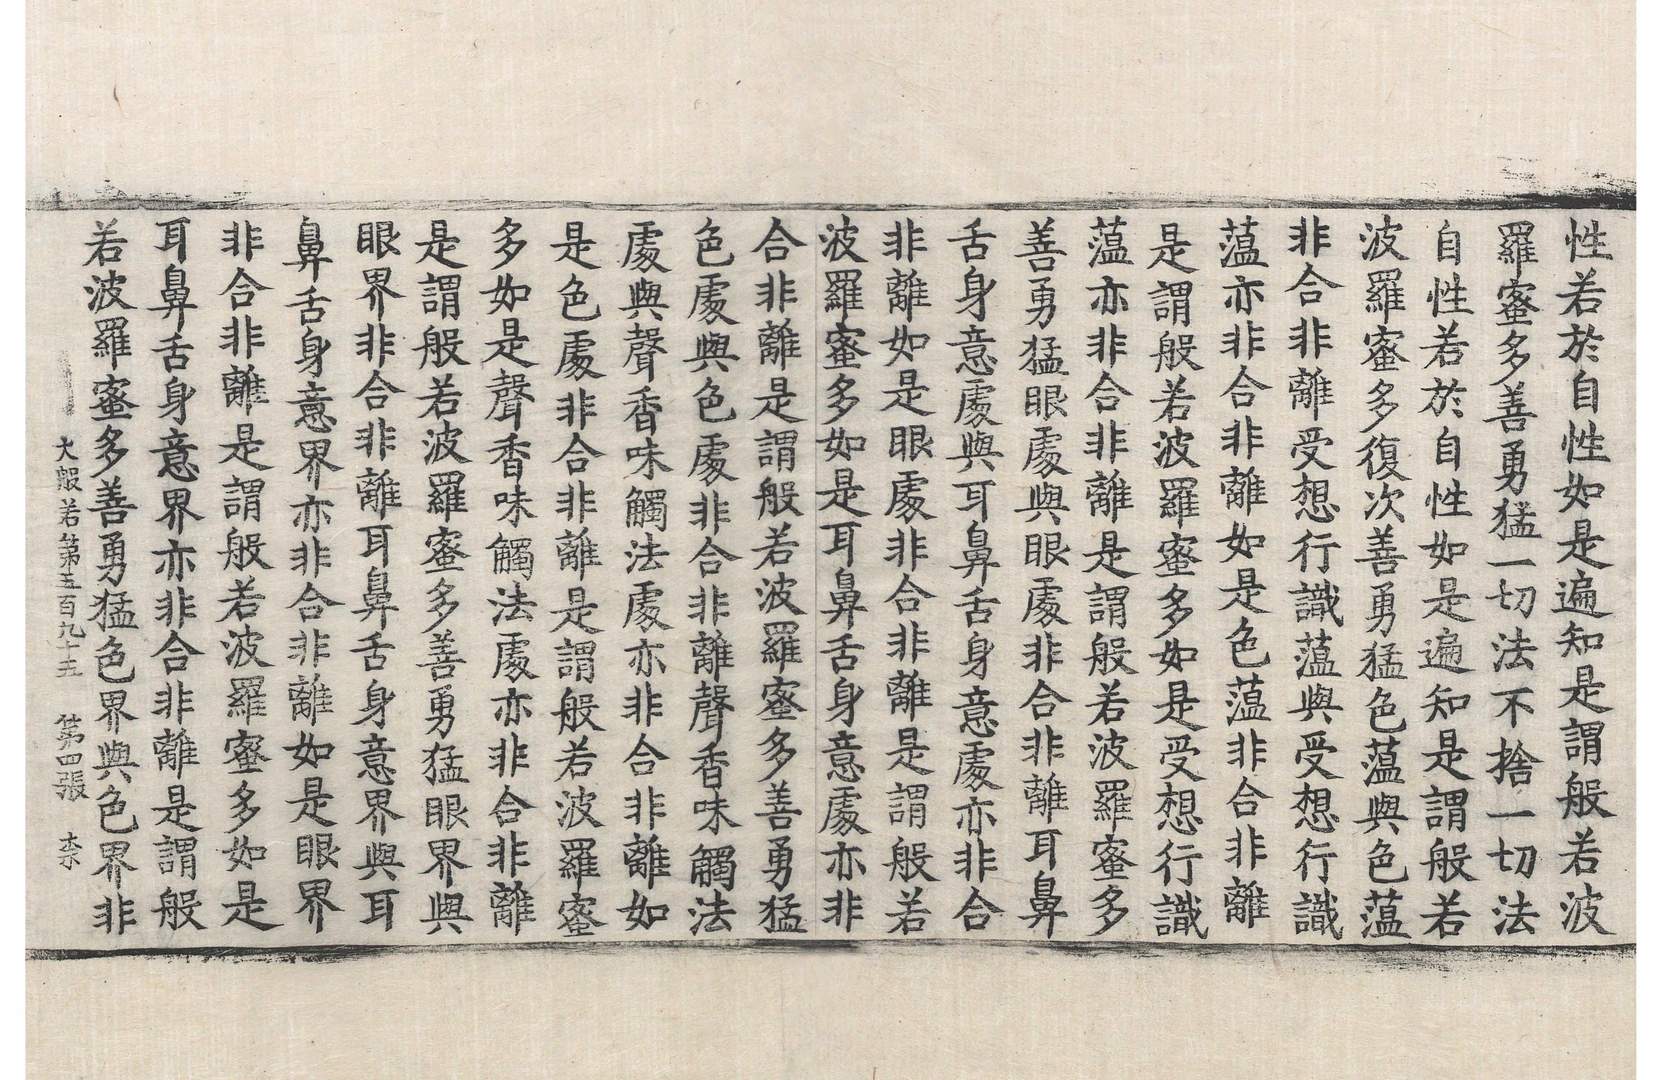 性若於自性如是遍知是謂般若波
羅蜜多善勇猛一切法不捨一切法
自性若於自性如是遍知是謂般若
波羅蜜多復次善勇猛色薀與色薀
非合非離受想行識薀與受想行識
薀亦非合非離如是色薀非合非離
是謂般若波羅蜜多如是受想行識
薀亦非合非離是謂般若波羅蜜多
善勇猛眼處與眼處非合非離耳鼻
舌身意處與耳鼻舌身意處亦非合
非離如是眼處非合非離是謂般若
波羅蜜多如是耳鼻舌身意處亦非
合非離是謂般若波羅蜜多善勇猛
色處與色處非合非離聲香味觸法
處與聲香味觸法處亦非合非離如
是色處非合非離是謂般若波羅蜜
多如是聲香味觸法處亦非合非離
是謂般若波羅蜜多善勇猛眼界與
眼界非合非離耳鼻舌身意界與耳
鼻舌身意界亦非合非離如是眼界
非合非離是謂般若波羅蜜多如是
耳鼻舌身意界亦非合非離是謂般
若波羅蜜多善勇猛色界與色界非
大般若第五百九十五 第四張 柰